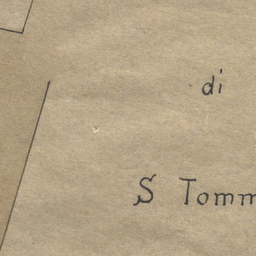 di
S Tomm